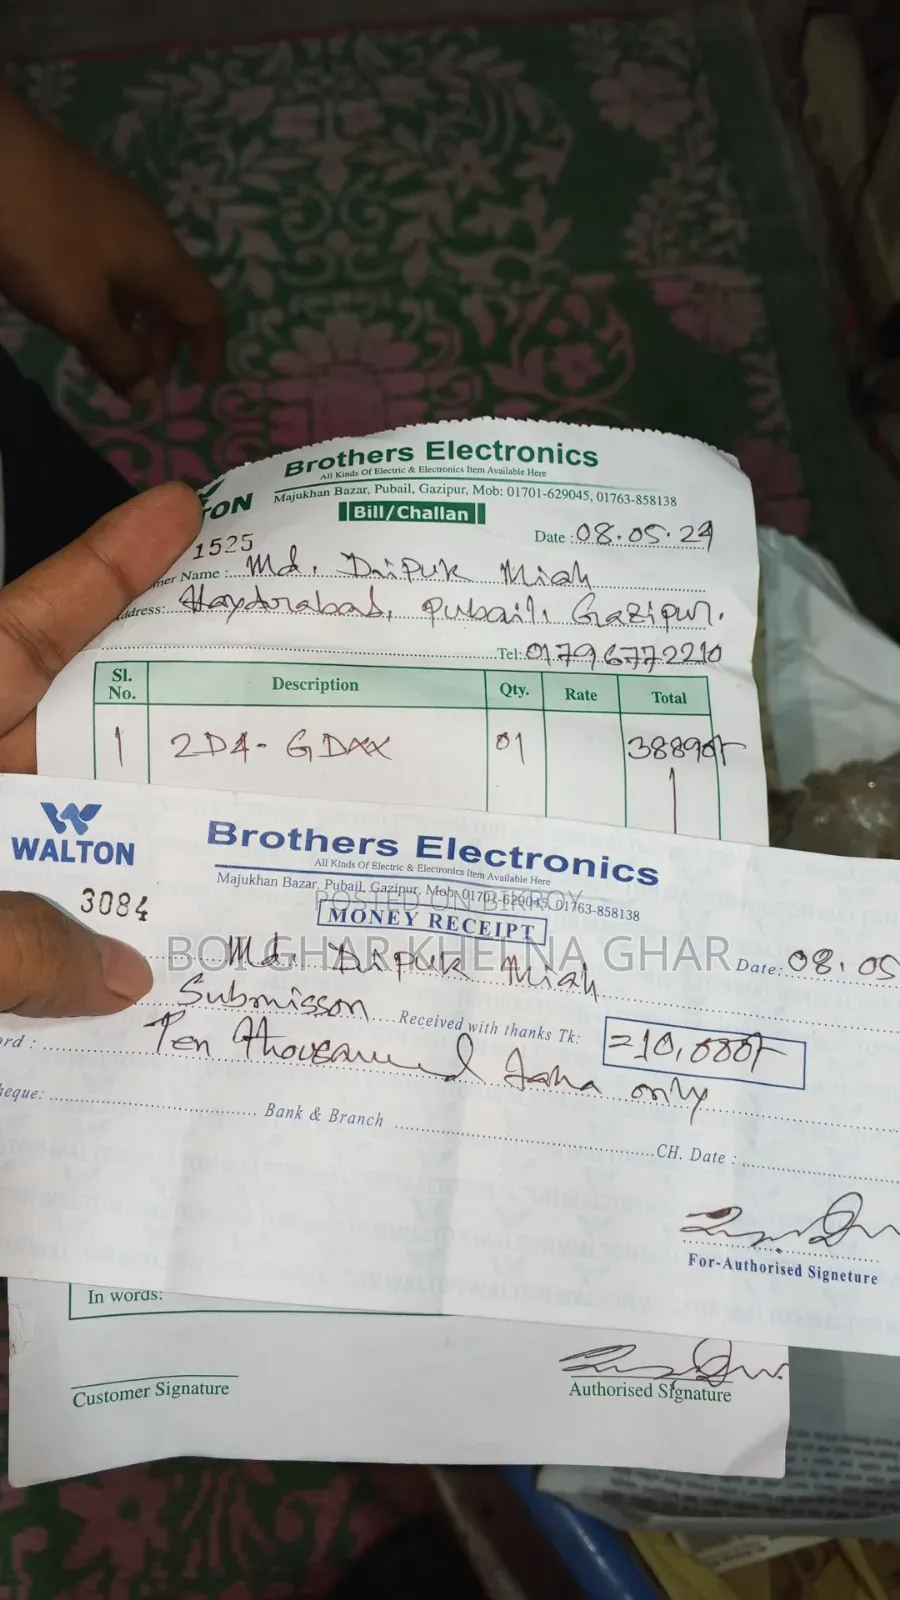 Brothers Electronics
All Kinds Of Electric & Electronics Item Available Here
TON
Majukhan Bazar, Pubail, Gazipur, Mob: 01701-629045, 01763-858138
Bill/Challan
1525
Date : 08.05.24
mer Name : Md. Dipuk Miah
address: Haydorabad, Pubail, Gazipur.
Tel: 01796772210
Sl. No. Description Qty. Rate Total
1 2D4-GDXX 01 38890/-
WALTON
Brothers Electronics
All Kinds Of Electric & Electronics Item Available Here
Majukhan Bazar, Pubail, Gazipur, Mob: 01701-629045, 01763-858138
POSTED ON BIKROY
3084
MONEY RECEIPT
BOI GHAR KHELNA GHAR
Md. Dipuk Miah Date: 08.05
Submisson Received with thanks Tk: =10,000/-
ord : Ten thousand Taka only
heque: Bank & Branch CH. Date :
For-Authorised Signeture
In words:
Customer Signature Authorised Signature